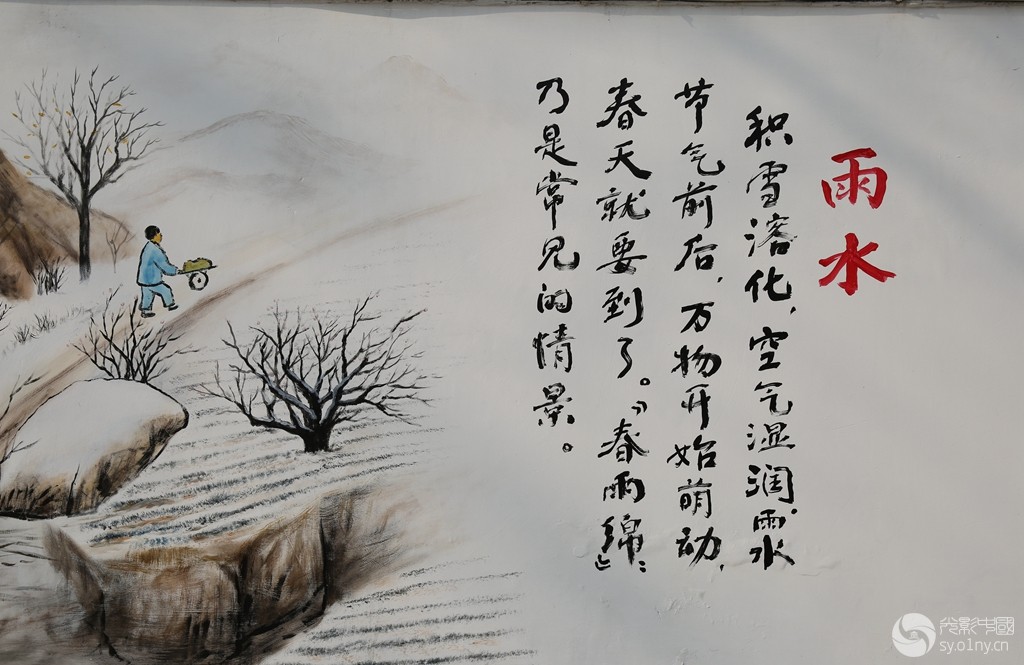 雨水
积雪溶化，空气湿润，雨水
节气前后，万物开始萌动，
春天就要到了。“春雨绵绵”
乃是常见的情景。
光影中國
sy.o1ny.cn